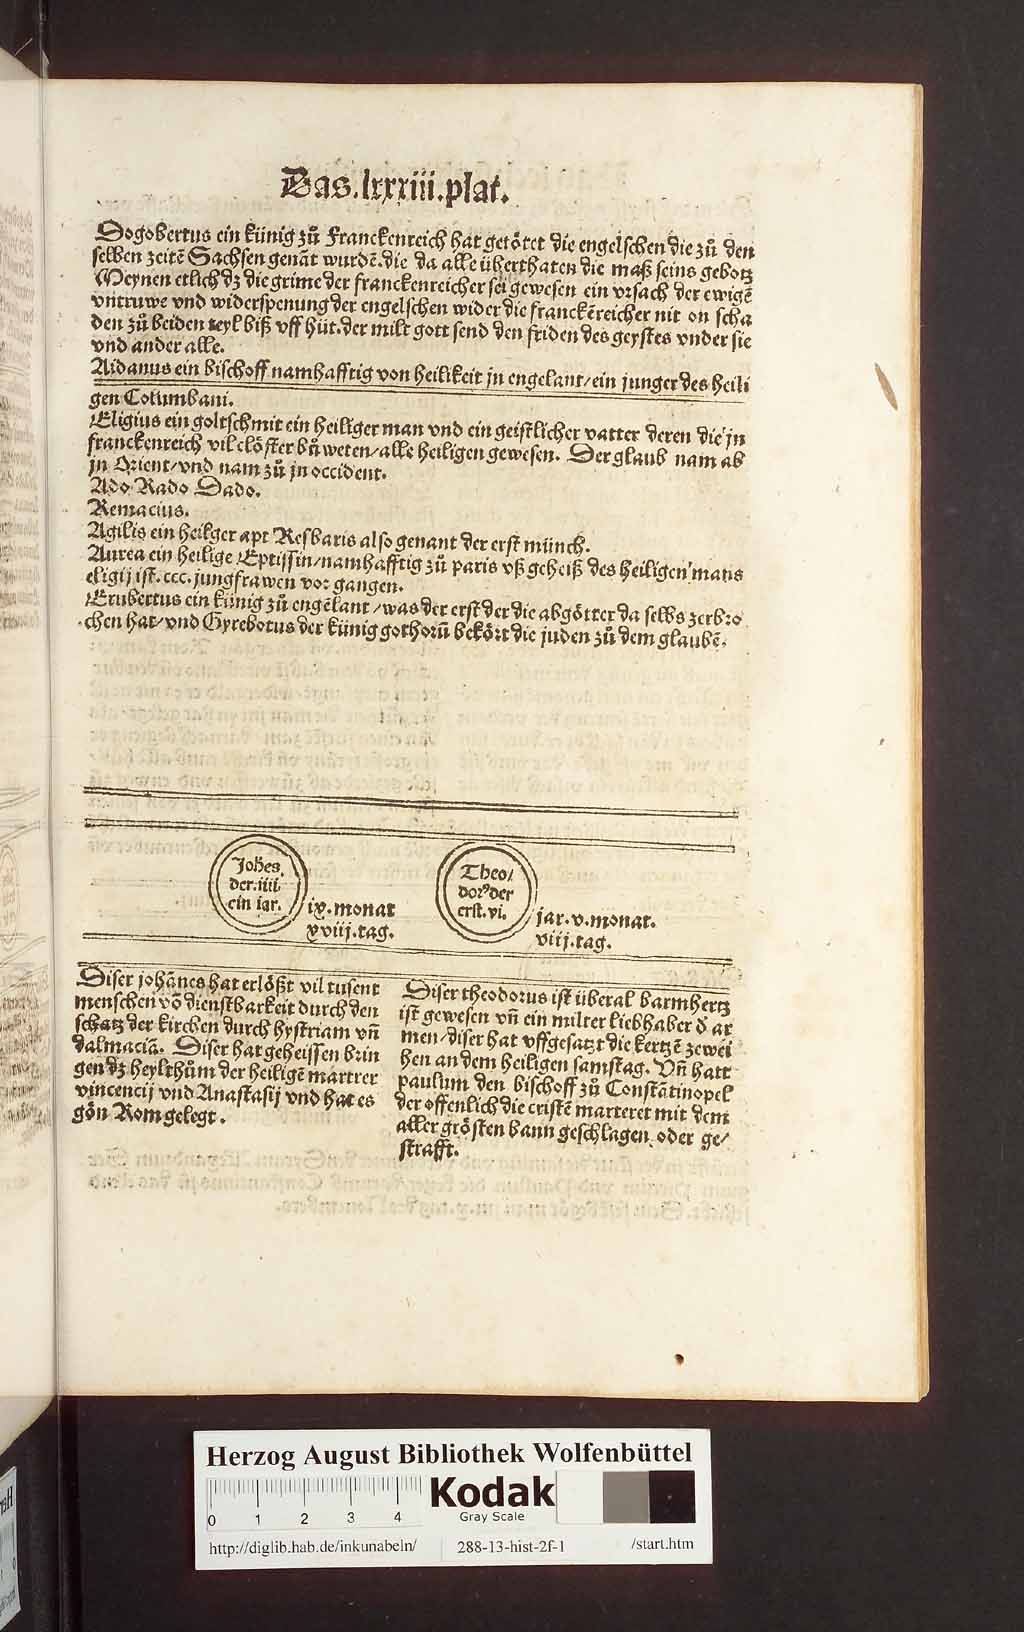 Das.lxxxiii.plat.
Dogobertus ein künig zů Franckenreich hat getötet die engelschen die zů den
selben zeitē Sachsen genāt wurdē.die da alle überthaten die maß seins gebotz
Meynen etlich dz die grime der franckenreicher sei gewesen ein vrsach der ewigē
vntruwe vnd widerspenung der engelschen wider die franckēreicher nit on scha
den zů beiden teyl biß vff hüt.der milt gott send den friden des geystes vnder sie
vnd ander alle.
Aidanus ein bischoff namhafftig von heilikeit jn engelant/ein junger des heili
gen Columbani.
Eligius ein goltschmit ein heiliger man vnd ein geistlicher vatter deren die jn
franckenreich vil clöster bůweten/alle heiligen gewesen. Der glaub nam ab
jn Orient/vnd nam zů jn occident.
Ado Rado Dado.
Remacius.
Agilis ein heilger apt Resbaris also genant der erst münch.
Aurea ein heilige Eptissin/namhafftig zů paris vß geheiß des heiligen mans
eligij ist.ccc.jungfrawen vor gangen.
Erubertus ein künig zů engēlant/was der erst der die abgötter da selbs zerbro
chen hat/vnd Gyrebotus der künig gothorū bekört die juden zů dem glaubē.
Johēs.
der.iiii.
ein iar.
ix.monat
xviij.tag.
Theo/
dorꝰ der
erst.vi.
jar.v.monat.
viij.tag.
Diser johānes hat erlößt vil tusent
menschen vō dienstbarkeit durch den
schatz der kirchen durch hystriam vñ
dalmaciā. Diser hat geheissen brin
gen dz heylthům der heiligē martrer
vincencij vnd Anastasij vnd hat es
gön Rom gelegt.
Diser theodorus ist überal barmhertz
ist gewesen vñ ein milter liebhaber d̄ ar
men/diser hat vffgesatzt die kertzē zewei
hen an dem heiligen samstag. Vñ hatt
paulum den bischoff zů Constātinopel
der offenlich die cristē marteret mit dem
aller grösten bann geschlagen oder ge/
strafft.
Herzog August Bibliothek Wolfenbüttel
0 1 2 3 4
Kodak
Gray Scale
http://diglib.hab.de/inkunabeln/ 288-13-hist-2f-1 /start.htm